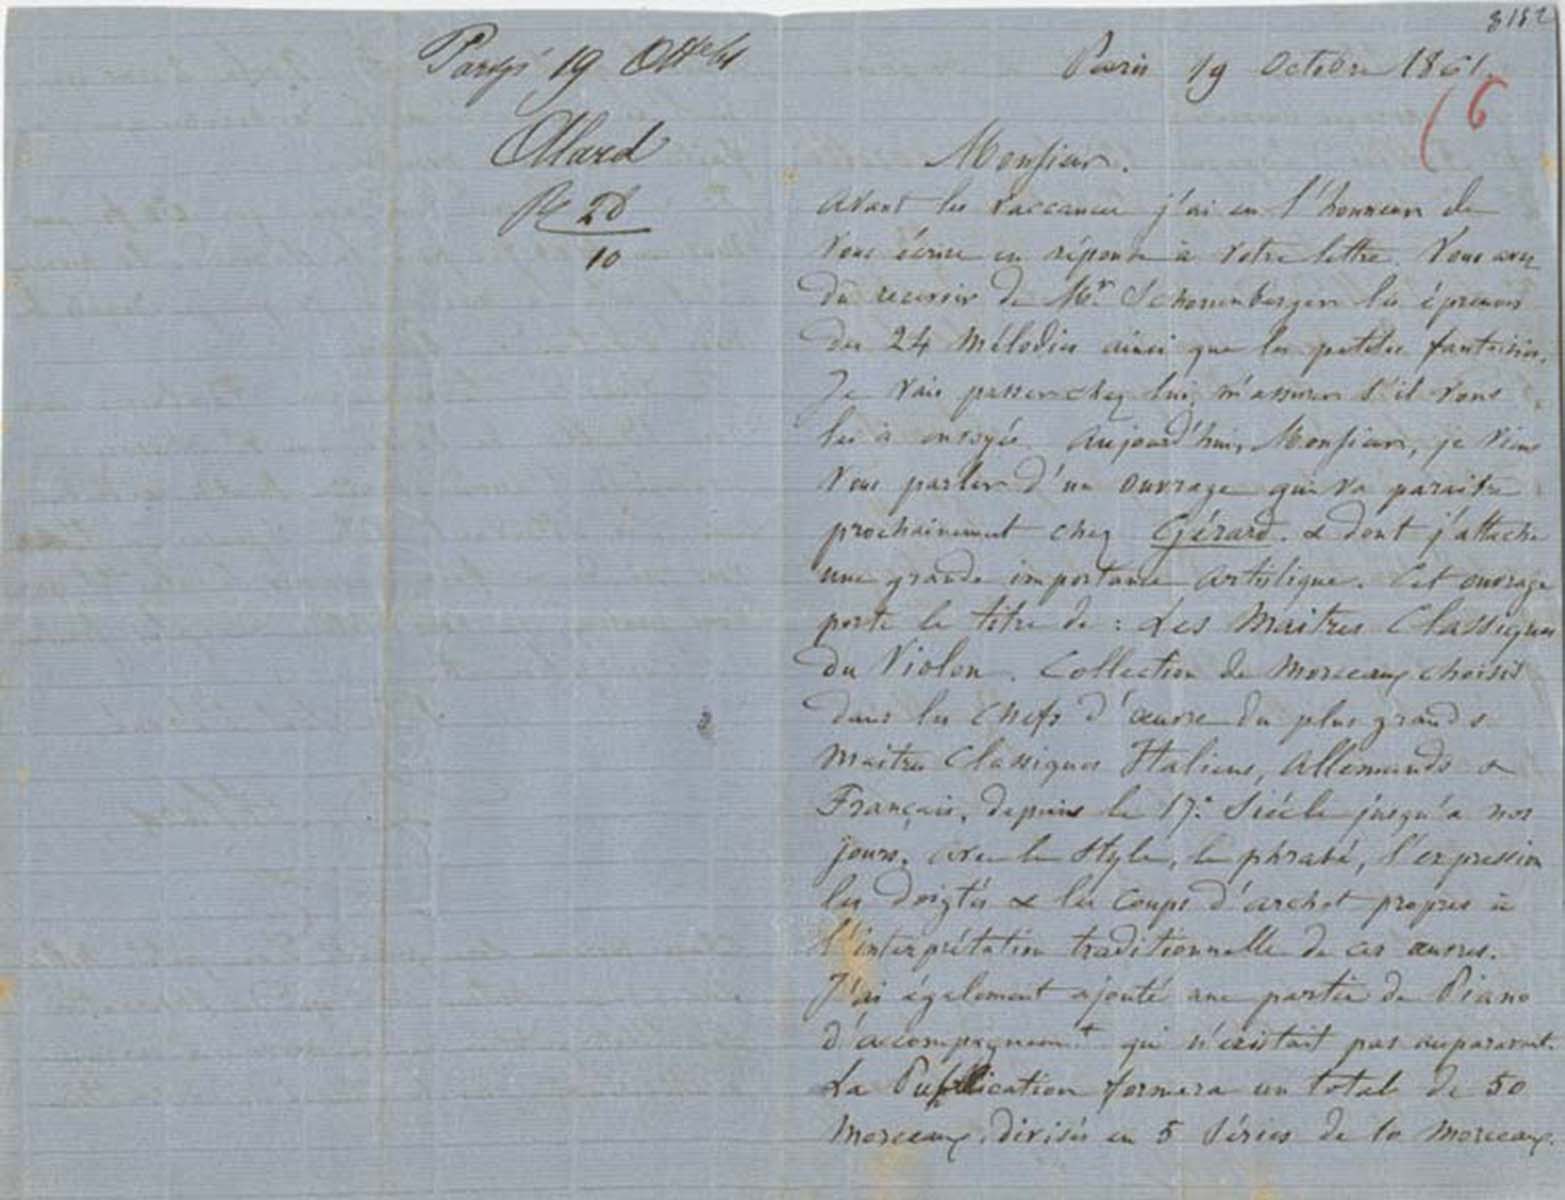 8182
19 Oct 61
Alard
28
10
Paris 19 Octobre 1861.
(6
Monsieur.
avant les vaccances j'ai eu l'honneur de
Vous écrire en réponse à votre lettre. Vous avez
dû recevoir de Mr Schonenberger les épreuves
des 24 Mélodies ainsi que les petites fantaisies.
Je vais passer chez lui m'assurer s'il vous
les à envoyés. aujourd'hui, Monsieur, je viens
Vous parler d'un ouvrage qui va paraitre
prochainement chez Gérard. & dont j'attache
une grande importance artistique. Cet ouvrage
porte le titre de : Les Maitres Classiques
du Violon. Collection de morceaux choisis
dans les chefs d'œuvre du plus grands
maitres Classiques Italiens, allemands &
Français, depuis le 17e Siècle jusqu'a nos
jours. avec le Style, le phrasé, l'expression
les doigtés & les Coups d'archet propres à
l'interprétation traditionnelle de ces œuvres.
J'ai également ajouté une partie de Piano
d'accompagnemt qui n'existait pas auparavant.
La Publication formera un total de 50
Morceaux, divisés en 5 Séries de 10 morceaux.